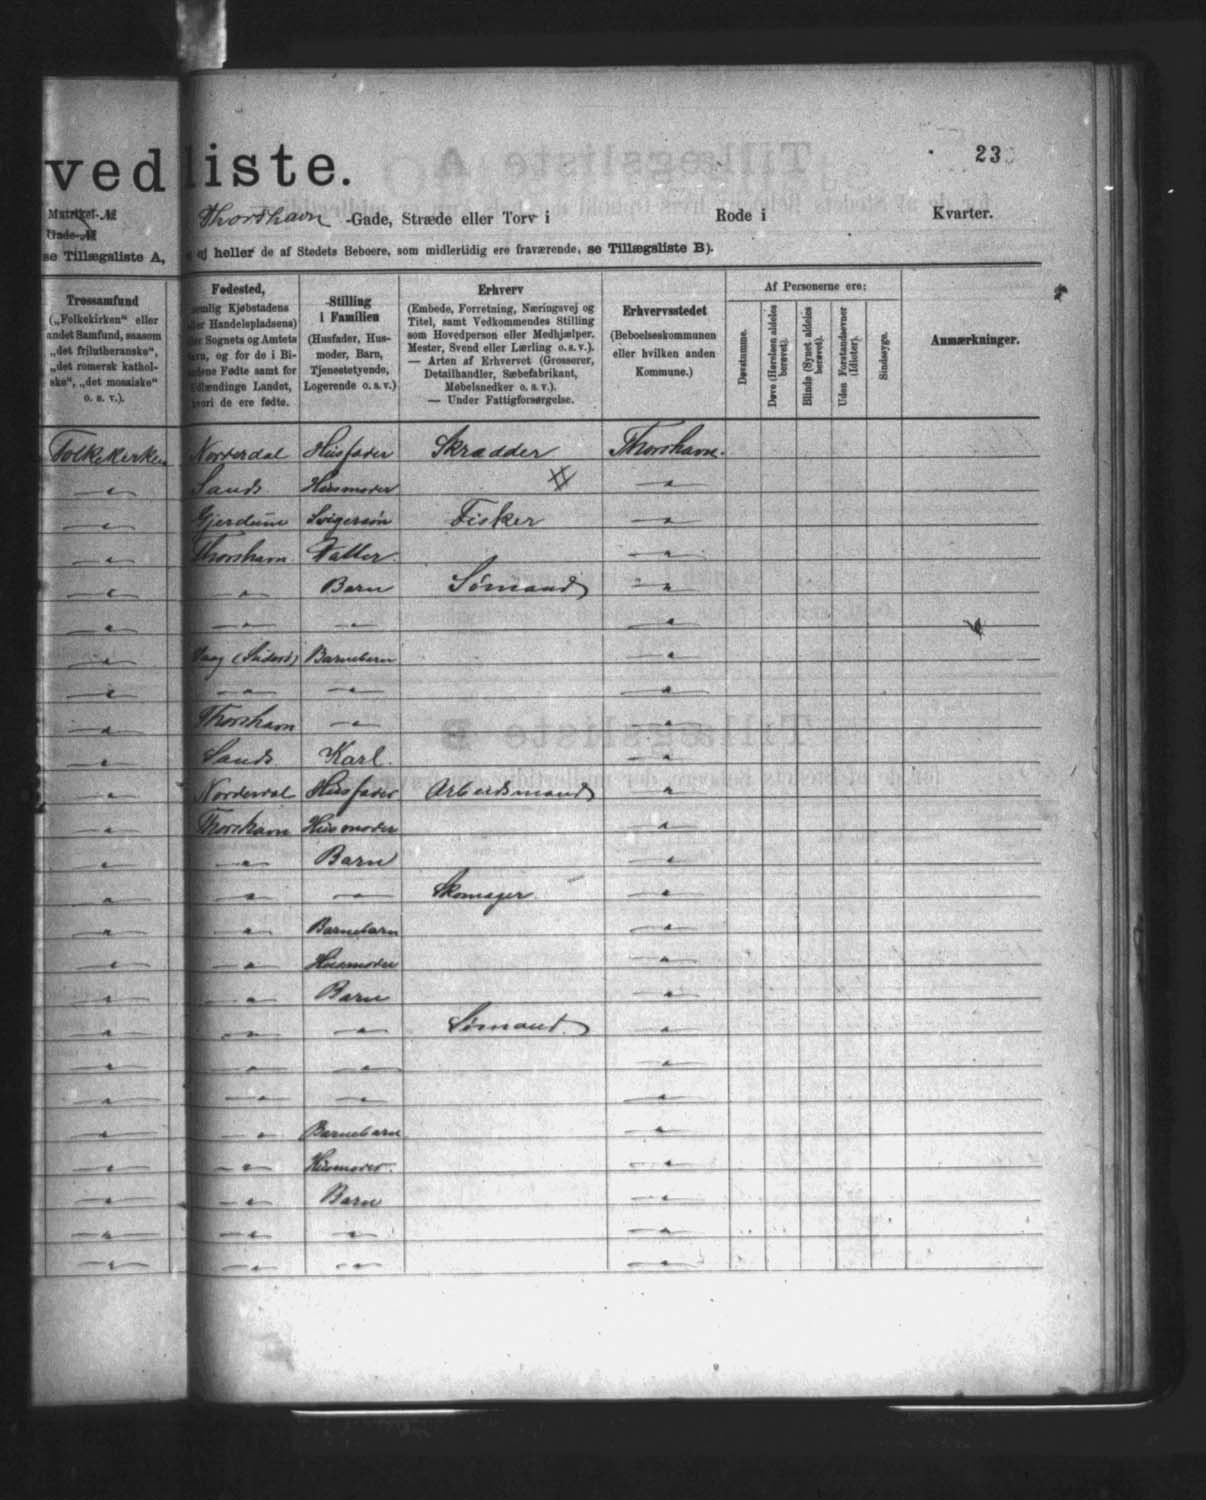 vedliste.
23
Matrikel-№
Gade-№
Thorshavn -Gade, Stræde eller Torv i Rode i Kvarter.
se Tillægsliste A, ej heller de af Stedets Beboere, som midlertidig ere fraværende, se Tillægsliste B).
Trossamfund
(„Folkekirken“ eller
andet Samfund, saasom
„det frilutheranske“,
„det romersk kathol-
ske“, „det mosaiske“
o. s. v.).
Fødested,
nemlig Kjøbstadens
eller Handelspladsens)
eller Sognets og Amtets
Navn, og for de i Bi-
landene Fødte samt for
Udlændinge Landet,
hvori de ere fødte.
Stilling
i Familien
(Husfader, Hus-
moder, Barn,
Tjenestetyende,
Logerende o. s. v.)
Erhverv
(Embede, Forretning, Næringsvej og
Titel, samt Vedkommendes Stilling
som Hovedperson eller Medhjælper,
Mester, Svend eller Lærling o. s. v.).
— Arten af Erhvervet (Grosserer,
Detailhandler, Sæbefabrikant,
Møbelsnedker o. s. v.).
— Under Fattigforsørgelse.
Erhvervsstedet
(Beboelseskommunen
eller hvilken anden
Kommune.)
Af Personerne ere:
Døvstumme.
Døve (Hørelsen aldeles
berøvet).
Blinde (Synet aldeles
berøvet).
Uden Forstandsevner
(Idioter).
Sindssyge.
Anmærkninger.
Folkekirken Norderdal Husfader Skrædder Thorshavn.
— " — Sands Husmoder — " —
— " — Gjerdum Svigersøn Fisker — " —
— " — Thorshavn Datter — " —
— " — — " — Barn Sømand — " —
— " — — " — — " — — " —
— " — Vaag (Suderø) Barnebarn — " —
— " — — " — — " — — " —
— " — Thorshavn — " — — " —
— " — Sands Karl. — " —
— " — Norderdal Husfader Arbeidsmand — " —
— " — Thorshavn Husmoder — " —
— " — — " — Barn — " —
— " — — " — — " — Skomager — " —
— " — — " — Barnebarn — " —
— " — — " — Husmoder — " —
— " — — " — Barn — " —
— " — — " — — " — Sømand. — " —
— " — — " — — " — — " —
— " — — " — — " — — " —
— " — — " — Barnebarn — " —
— " — — " — Husmoder. — " —
— " — — " — Barn — " —
— " — — " — — " — — " —
— " — — " — — " — — " —